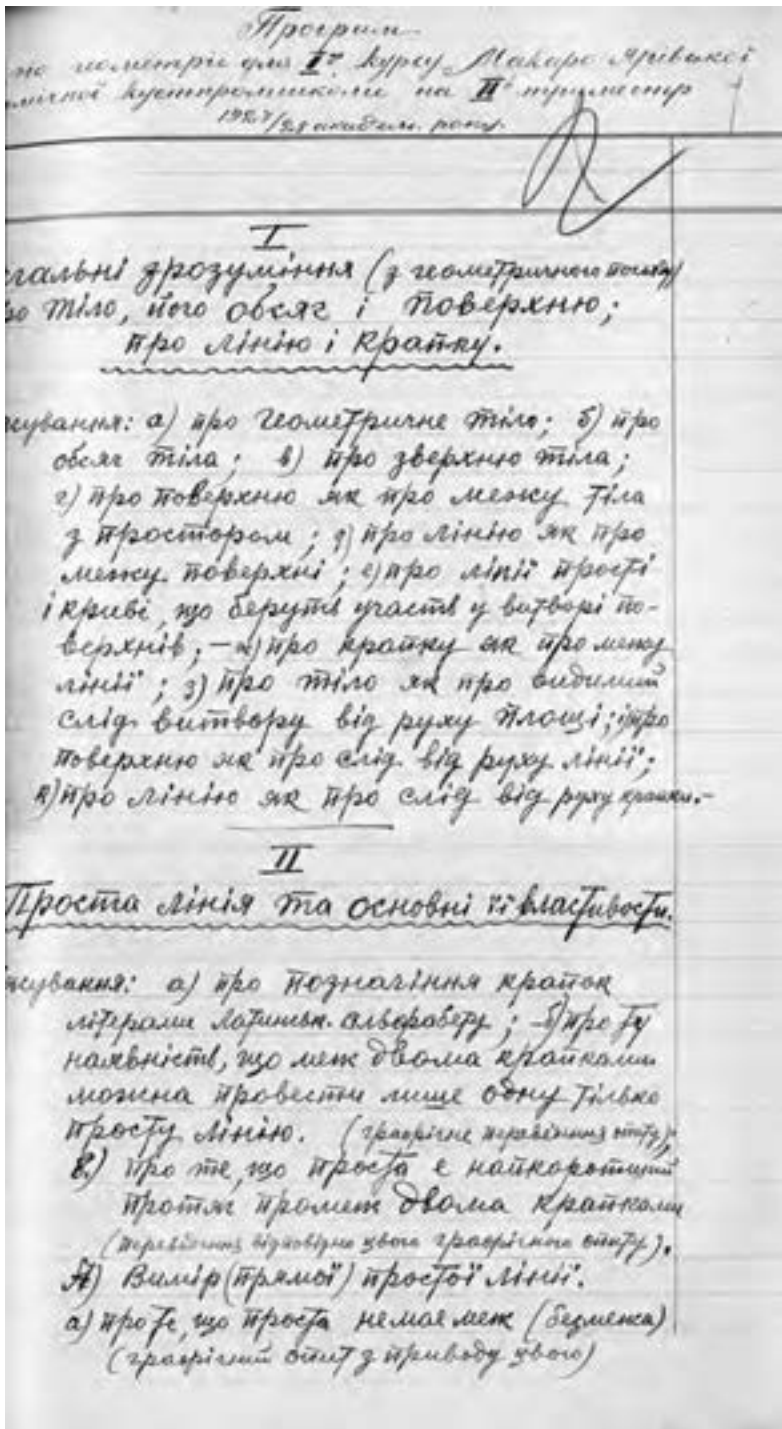 Програм
по геометрії для І^го курсу Макаро Яривської
керамічної кустпромшколи на ІІ^й триместр
1927/28 академ. року.
I
гальні зрозуміння (з геометричного погляду)
ро тіло, його обсяг і поверхню;
про лінію і крапку.
сування: а) про геометричне тіло; б) про
обсяг тіла; в) про зверхню тіла;
г) про поверхню як про межу тіла
з простором; д) про лінію як про
межу поверхні; е) про лінії прості
і криві, що беруть участь у витворі по-
верхнів; – ж) про крапку як про межу
лінії; з) про тіло як про видимий
слід витвору від руху площі; і) про
поверхню як про слід від руху лінії;
к) про лінію як про слід від руху крапки. –
II
Проста лінія та основні її властивости.
сування: а) про позначіння крапок
літерами латинськ. альфаберу; – б) про ту
наявність, що меж двома крапками
можна провести лише одну тільки
просту лінію. (графічне перевіння опиту);
в) про те, що проста є найкоротший
протяг промеж двома крапками
(перевіння відповідно цього графічного опиту).
А) Вимір (прямої) простої лінії.
а) про те, що проста немає меж (безмежна)
(графічний опит з приводу цього)